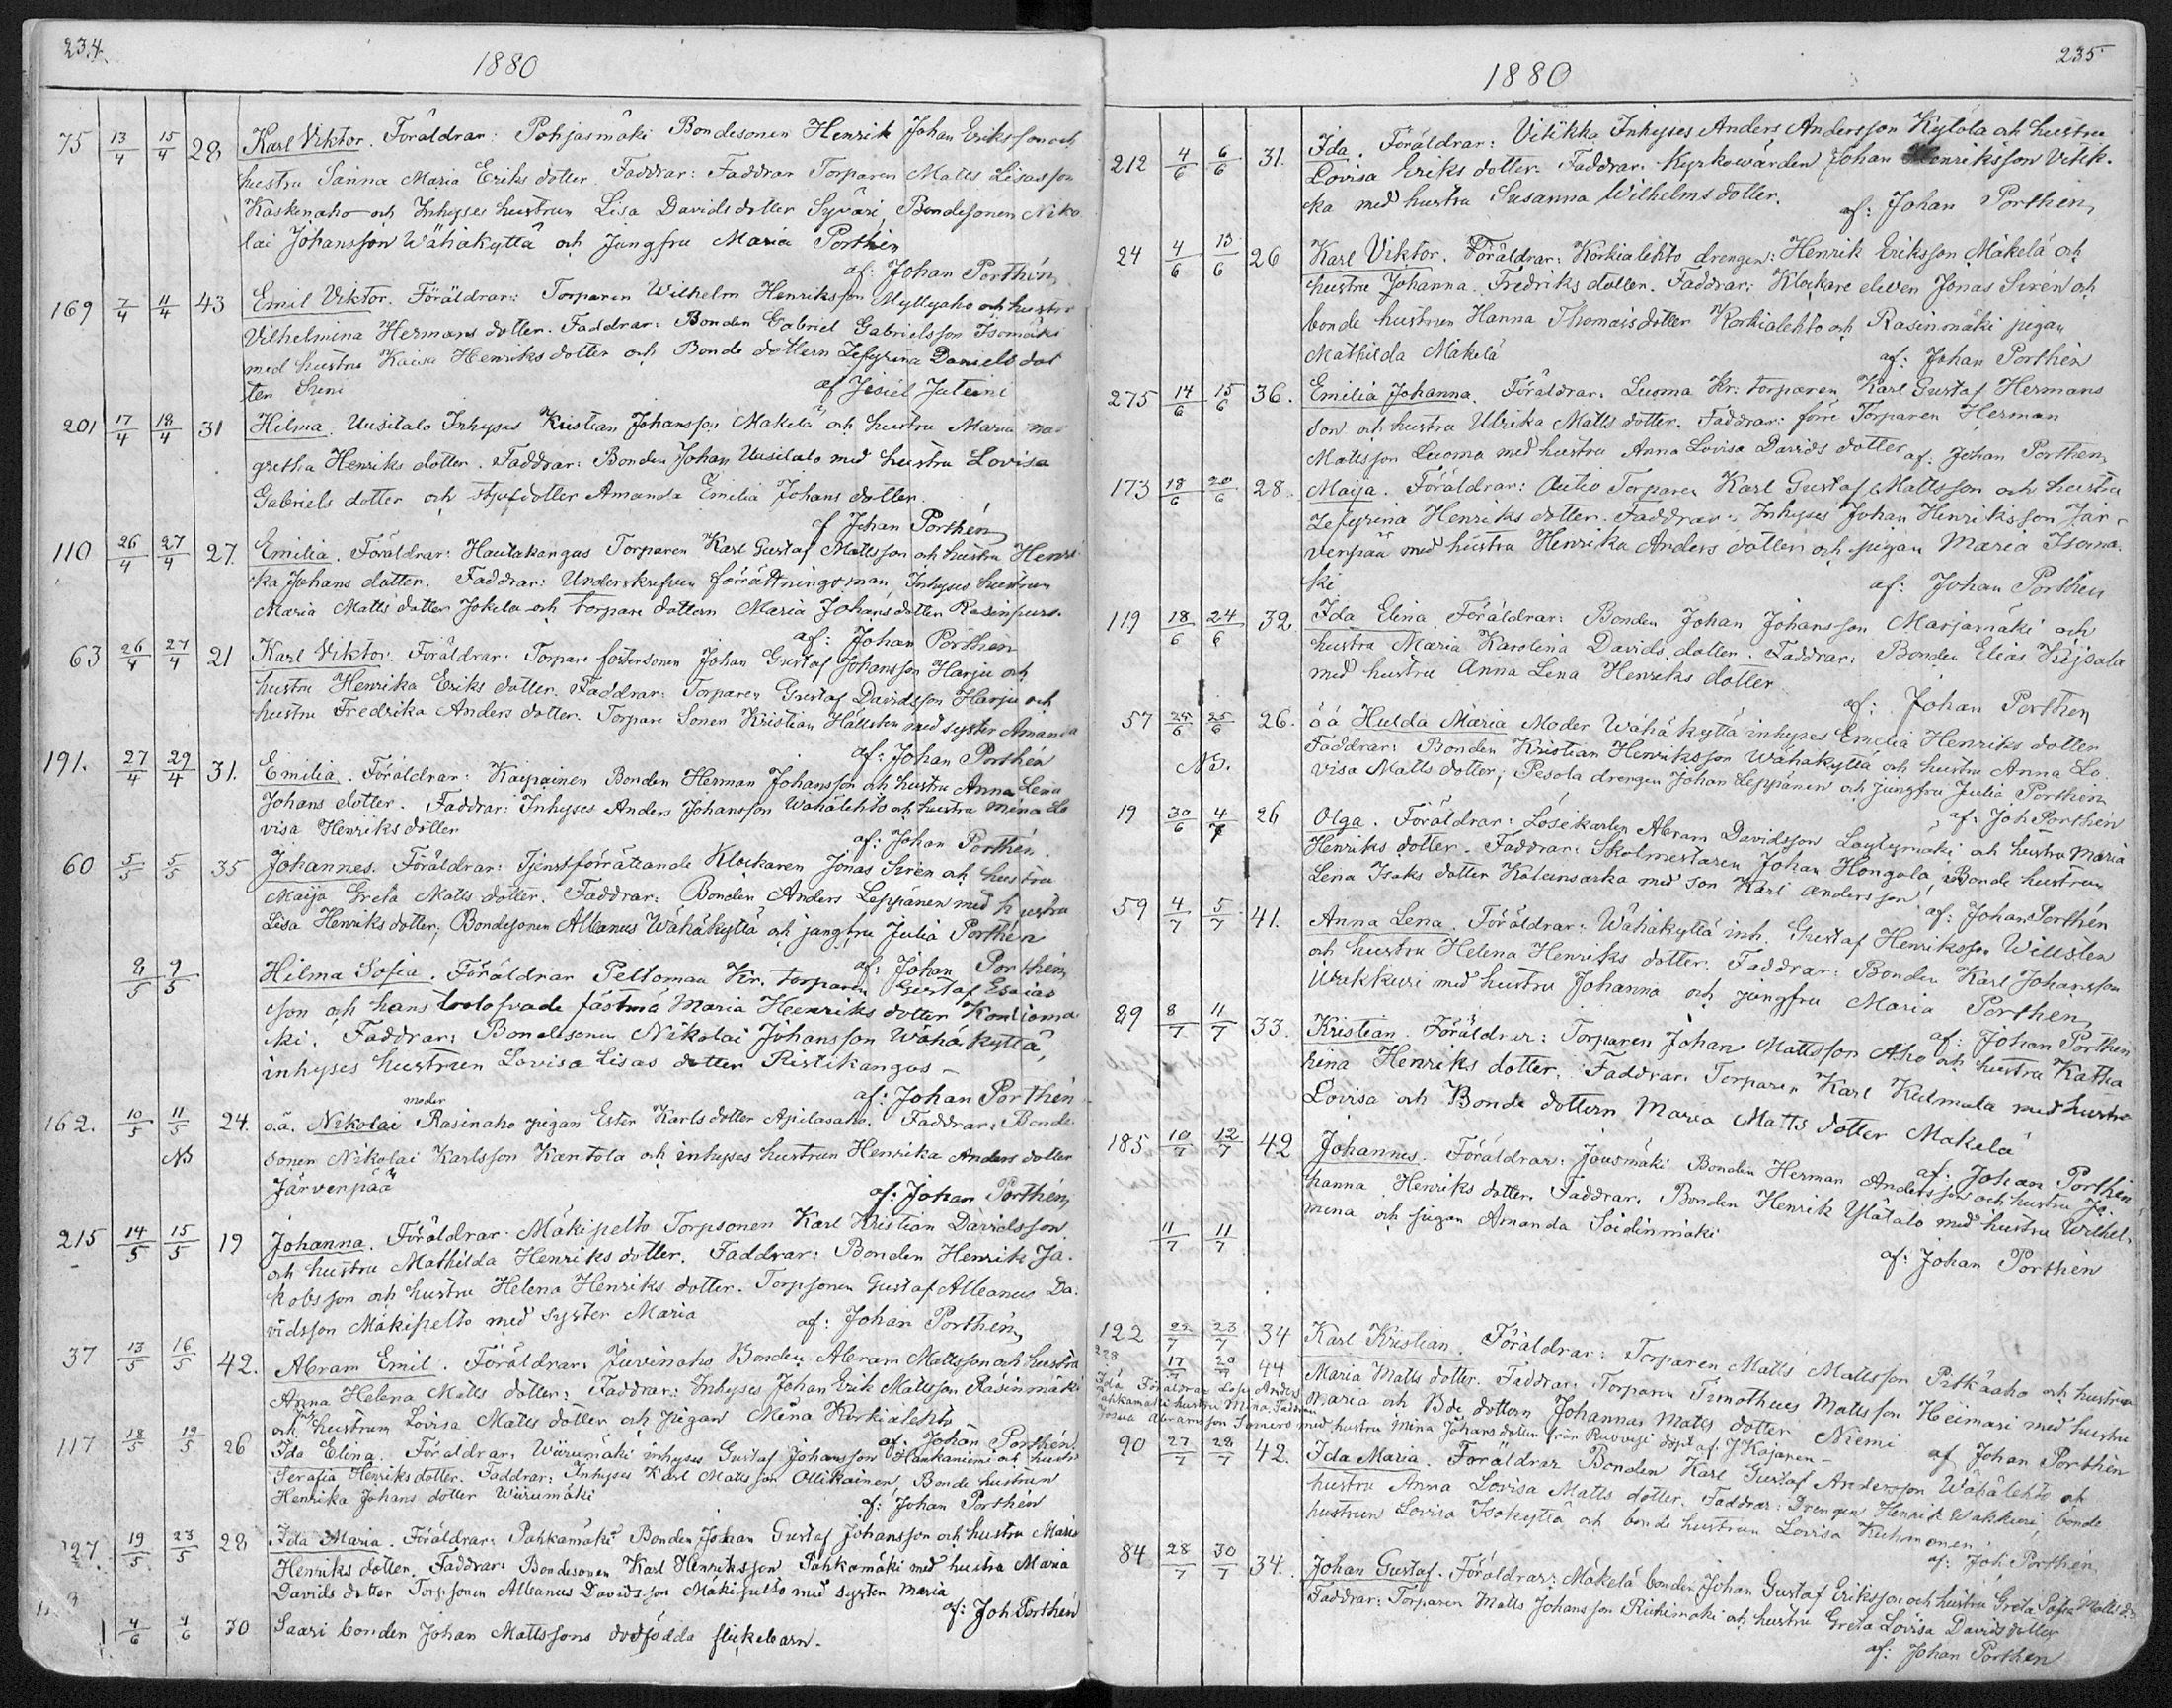 234.
1880
75 13/4 15/4 28 Karl Viktor. Föräldrar: Pohjasmäki Bondesonen Henrik Johan Eriksson och
hustru Sanna Maria Eriks dotter. Faddrar: Faddrar Torparen Matts Lisasson
Kaskenaho och Inhyses hustrun Lisa Davids dotter Syväri, Bondesonen Niko
lai Johansson Wähäkyttä och Jungfru Maria Porthén
af: Johan Porthén
169 7/4 11/4 43 Emil Viktor. Föräldrar: Torparen Wilhelm Henriksson Myllyaho och hustru
Vilhelmina Hermans dotter. Faddrar: Bonden Gabriel Gabrielsson Isomäki
med hustru Kaisa Henriks dotter och Bonde dottern Zefyrina Daniels dot
ter Suni af Jisiel Juteini
201 17/4 18/4 31 Hilma. Uusitalo Inhyses Kristian Johansson Mäkelä och hustru Maria mar
gretha Henriks dotter. Faddrar: Bonden Johan Uusitalo med hustru Lovisa
Gabriels dotter och styfdotter Amanda Emilia Johans dotter.
af Johan Porthén
110 26/4 27/4 27. Emilia. Föräldrar: Hautakangas Torparen Karl Gustaf Mattsson och hustru Henri
ka Johans dotter. Faddrar: Underskrifven förrättningsman, Inhyses hustrun
Maria Matts dotter Jokela och torpare dottern Maria Johans dotter Rasinpuro.
af: Johan Porthén
63 26/4 27/4 21 Karl Viktor. Föräldrar: Torpare fostersonen Johan Gustaf Johansson Harju och
hustru Henrika Eriks dotter. Faddrar: Torparen Gustaf Davidsson Harju och
hustru Fredrika Anders dotter. Torpare Sonen Kristian Hällsten med syster Amanda
af: Johan Porthén
191. 27/4 29/4 31. Emilia. Föräldrar: Kaipainen Bonden Herman Johansson och hustru Anna Lena
Johans dotter. Faddrar: Inhyses Anders Johansson Wähälehto och hustru Mina Lo
visa Henriks dotter
af: Johan Porthén
60 5/5 5/5 35 Johannes. Föräldrar: Tjenstförrättande Klockaren Jonas Sirén och hustru
Maija Greta Matts dotter. Faddrar: Bonden Anders Leppänen med hustru
Lisa Henriks dotter; Bondesonen Albanus Wähäkyttä och jungfru Julia Porthén
af: Johan Porthén
8/5 9/5 Hilma Sofia. Föräldrar Peltomaa Kr. torparen Gustaf Esaias
son och hans trolofvade fästmö Maria Henriks dotter Kontioma
ki. Faddrar: Bondesonen Nikolai Johansson Wähäkyttä,
inhyses hustrun Lovisa Lisas dotter Ristikangas –
af: Johan Porthén
162. 10/5 11/5 24. o.ä. Nikolai moder Rasinaho pigan Ester Karls dotter Apilasaho. Faddrar: Bonde
NB sonen Nikolai Karlsson Kantola och inhyses hustrun Henrika Anders dotter
Järvenpää
af: Johan Porthén
215 14/5 15/5 19 Johanna. Föräldrar Mäkipelto Torpsonen Karl Kristian Davidsson
och hustru Mathilda Henriks dotter. Faddrar: Bonden Henrik Ja-
kobsson och hustru Helena Henriks dotter. Torpsonen Gustaf Albanus Da-
vidsson Mäkipelto med syster Maria af: Johan Porthén
37 13/5 16/5 42. Abram Emil. Föräldrar: Juvinaho Bonden Abram Mattsson och hustru
Anna Helena Matts dotter: Faddrar: Inhyses Johan Erik Mattsson Räsinmäki
och Inh. hustrun Lovisa Matts dotter och pigan Mina Korkialehto
af: Johan Porthén
117 18/5 19/5 26 Ida Elina. Föräldrar: Wiirumäki inhyses Gustaf Johansson Hankaniemi och hustru
Serafia Henriks dotter. Faddrar: Inhyses Karl Matts son Ollikainen, Bonde hustrun
Henrika Johans dotter Wiirumäki
af: Johan Porthén
127 19/5 23/5 28 Ida Maria. Föräldrar: Pahkamäki Bonden Johan Gustaf Johansson och hustru Maria
Henriks dotter. Faddrar: Bondesonen Karl Henriksson Pahkamäki med hustru Maria
Davids dotter Torpsonen Albanus Davidsson Mäkipelto med syster Maria
af: Joh Porthén
4/6 4/6 30 Saari bonden Johan Mattssons dödfödda flickebarn.
235
1880
212 4/6 6/6 31. Ida. Föräldrar: Vitikka Inhyses Anders Andersson Kylölä och hustru
Lovisa Eriks dotter. Faddrar. Kyrkowärden Johan Henriksson Vitik-
ka med hustru Susanna Wilhelms dotter.
af: Johan Porthén
24 4/6 13/6 26 Karl Viktor. Föräldrar: Korkialehto drengen: Henrik Eriksson Mäkelä och
hustru Johanna Fredriks dotter. Faddrar: Klockare eleven Jonas Sirén och
bonde hustrun Hanna Thomas dotter Korkialehto och Rasinmäki pigan
Mathilda Mäkelä af: Johan Porthén
275 14/6 15/6 36. Emilia Johanna. Föräldrar: Luoma Kr: torparen Karl Gustaf Hermans
son och hustru Ulrika Matts dotter. Faddrar: förre Torparen Herman
Mattsson Luoma med hustru Anna Lovisa Davids dotter af: Johan Porthén
173 18/6 20/6 28. Maija. Föräldrar: Autio Torparen Karl Gustaf Mattsson och hustru
Zefyrina Henriks dotter. Faddrar: Inhyses Johan Henriksson Jär-
venpää med hustru Henrika Anders dotter och pigan Maria Isomä-
ki af: Johan Porthén
119 18/6 24/6 32 Ida Elina. Föräldrar: Bonden Johan Johansson Marjamäki och
hustru Maria Karolina Davids dotter. Faddrar: Bonden Elias Kujala
med hustru Anna Lena Henriks dotter
af: Johan Porthén
57 24/6 25/6 26. oä Hulda Maria Moder Wähäkyttä inhyses Emelia Henriks dotter
Faddrar: Bonden Kristian Henriksson Wähäkyttä och hustru Anna Lo
NB. visa Matts dotter; Pesola drengen Johan Leppänen och jungfru Julia Porthén
af: Joh Porthén
19 30/6 4/7 26 Olga. Föräldrar: Lösekarlen Abram Davidsson Löytymäki och hustru Maria
Henriks dotter. Faddrar: Skolmestaren Johan Hongola, Bonde hustrun
Lena Isaks dotter Kaleinsaska med son Karl Andersson
af: Johan Porthén
59 4/7 5/7 41. Anna Lena. Föräldrar: Wähäkyttä inh. Gustaf Henriksson Willsten
och hustru Helena Henriks dotter. Faddrar: Bonden Karl Johansson
Wakkuri med hustru Johanna och jungfru Maria Porthén
af: Johan Porthén
89 8/7 11/7 33. Kristian. Föräldrar: Torparen Johan Mattsson Aho och hustru Katha
rina Henriks dotter. Faddrar: Torparen Karl Kulmala med hustru
Lovisa och Bonde dottern Maria Matts dotter Mäkelä
af: Johan Porthén
185 10/7 12/7 42 Johannes. Föräldrar: Jousmäki Bonden Herman Andersson och hustru Jo-
hanna Henriks dotter. Faddrar: Bonden Henrik Ylätalo med hustru Wilhel-
mina och pigan Amanda Soidinmäki
af: Johan Porthén
11/7 11/7
122 22/7 23/7 34 Karl Kristian. Föräldrar: Torparen Matts Mattsson Pitkäaho och hustru
Maria Matts dotter. Faddrar: Torparen Timotheus Mattsson Heimari med hustru
Maria och Bde dottern Johannas Matts dotter Niemi
af Johan Porthén
228 17/7 20/7 44
Ida Föräldrar Lösk. Anders
Pahkamäki hustru Mina. Faddrar
Josua Abramsson Somero med hustru Mina Johans dotter från Ruovesi döpt af: J Kajanen –
90 27/7 28/7 42. Ida Maria. Föräldrar Bonden Karl Gustaf Andersson Wähälehto och
hustru Anna Lovisa Matts dotter. Faddrar: Drengen Henrik Wakkuri, bonde
hustrun Lovisa Isokyttä och bonde hustrun Lovisa Kuhmonen.
af: Joh Porthén
84 28/7 30/7 34. Johan Gustaf. Föräldrar: Mäkelä bonden Johan Gustaf Eriksson och hustru Greta Sofia Matts dr.
Faddrar: Torparen Matts Johansson Riihimäki och hustru Greta Lovisa Davids dotter
af: Johan Porthén